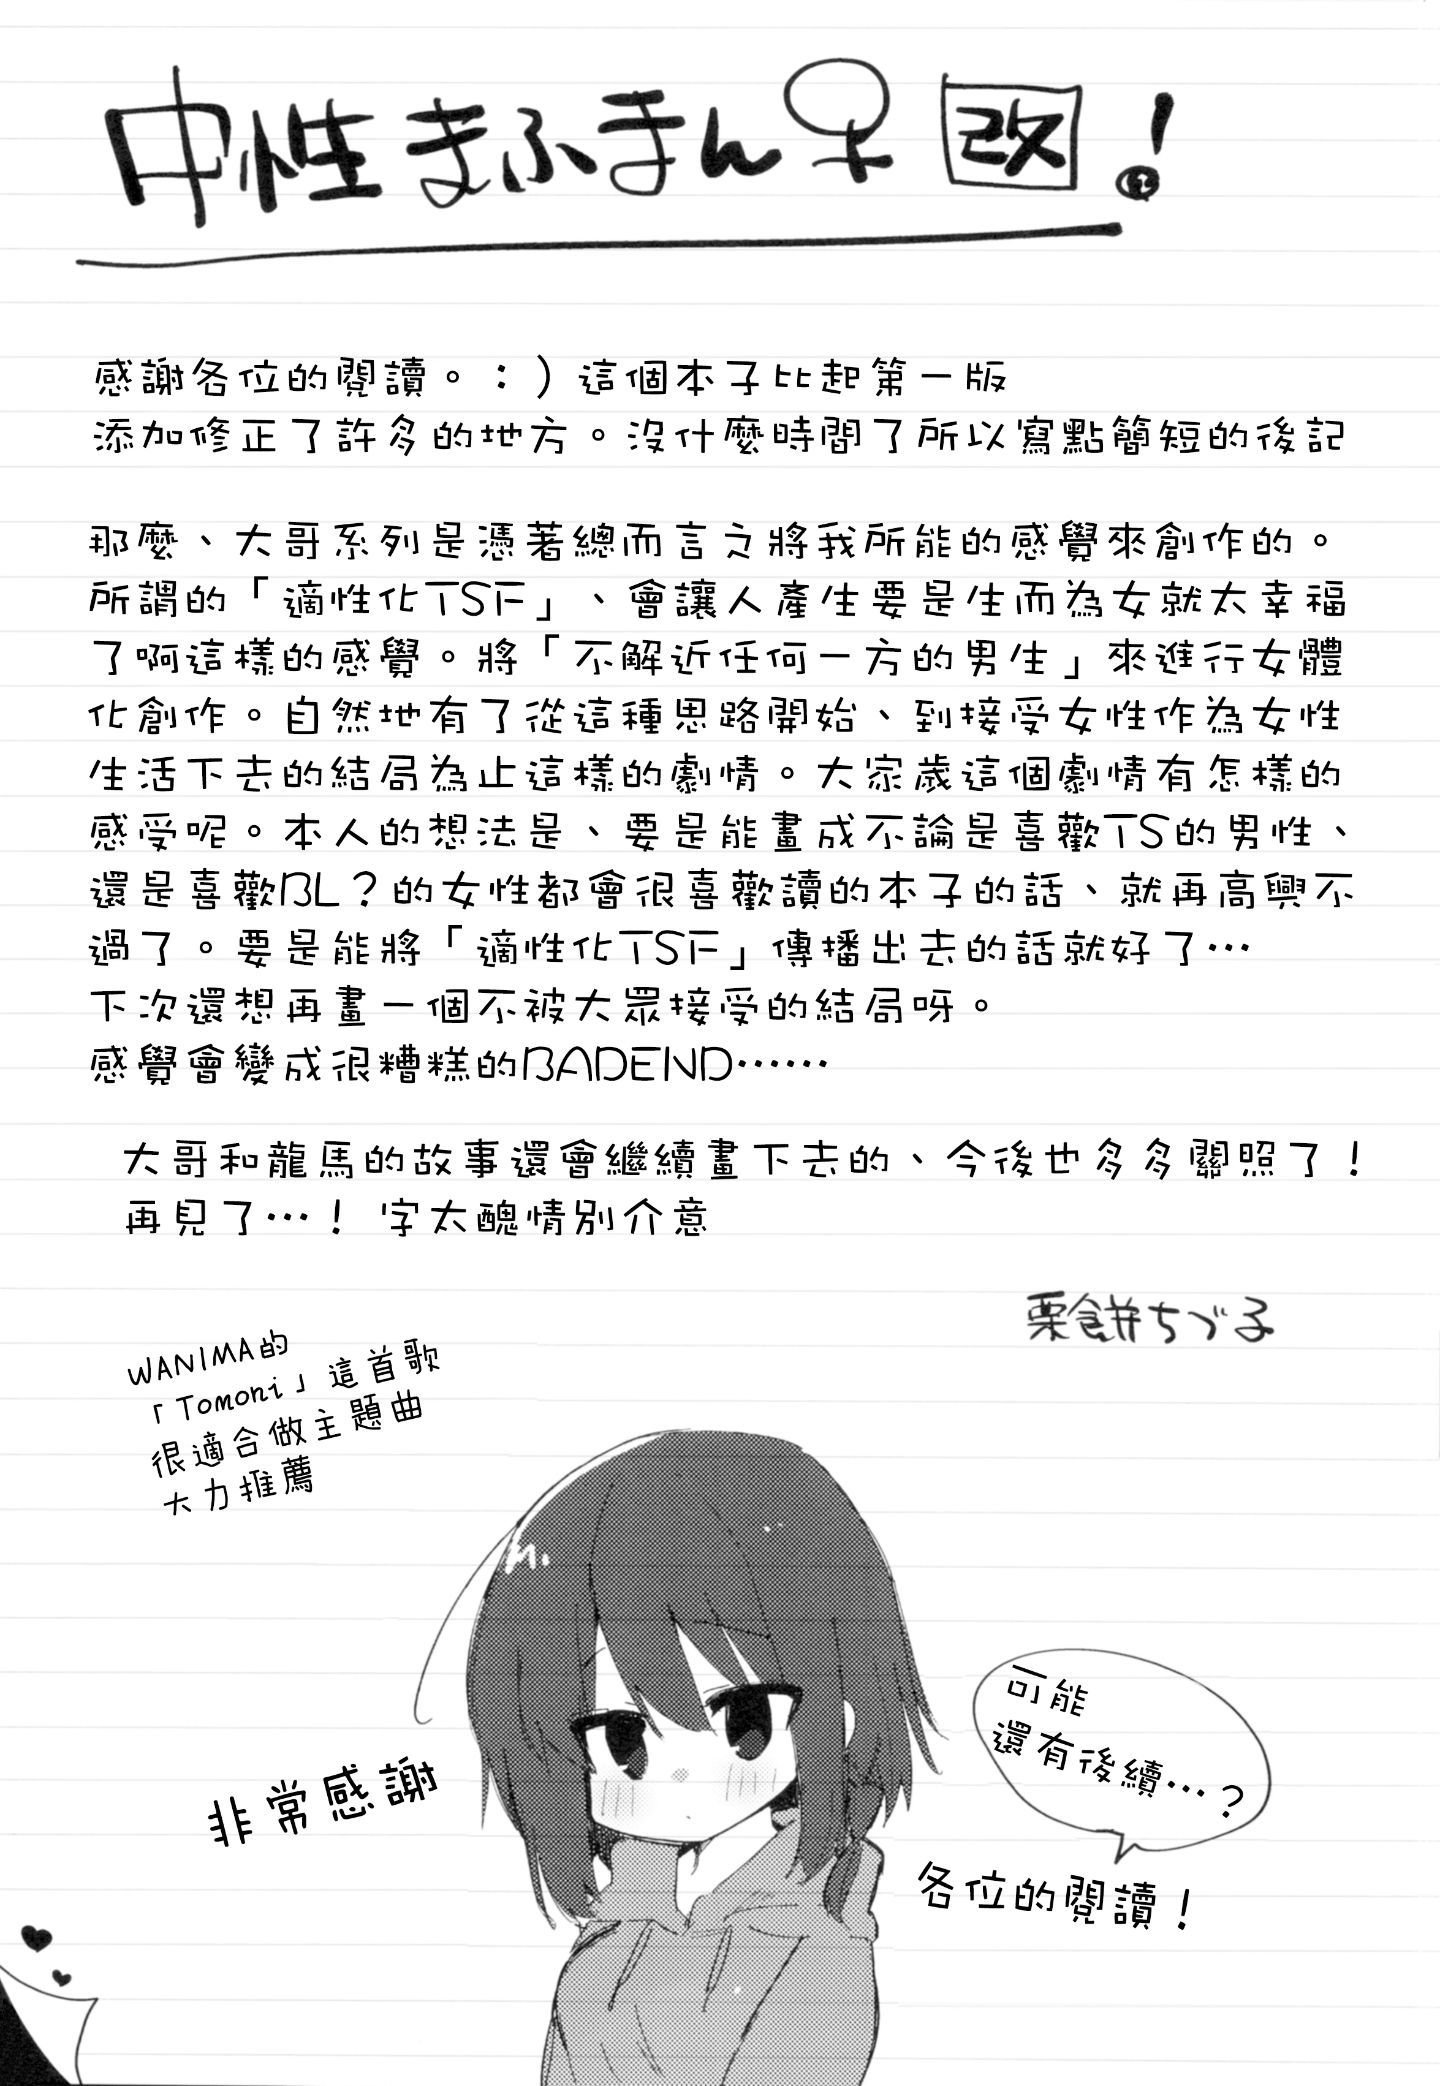 中性まふまん♀改!
感謝各位的閱讀。:)這個本子比起第一版
添加修正了許多的地方。沒什麼時間了所以寫點簡短的後記
那麼、大哥系列是憑著總而言之將我所能的感覺來創作的。
所謂的「適性化TSF」、會讓人產生要是生而為女就太幸福
了啊這樣的感覺。將「不解近任何一方的男生」來進行女體
化創作。自然地有了從這種思路開始、到接受女性作為女性
生活下去的結局為止這樣的劇情。大家歲這個劇情有怎樣的
感受呢。本人的想法是、要是能畫成不論是喜歡TS的男性、
還是喜歡BL?的女性都會很喜歡讀的本子的話、就再高興不
過了。要是能將「適性化TSF」傳播出去的話就好了…
下次還想再畫一個不被大眾接受的結局呀。
感覺會變成很糟糕的BADEND……
大哥和龍馬的故事還會繼續畫下去的、今後也多多關照了!
再見了…! 字太醜情別介意
栗餅ちづ子
WANIMA的
「Tomoni」這首歌
很適合做主題曲
大力推薦
可能
還有後續…?
非常感謝
各位的閱讀!